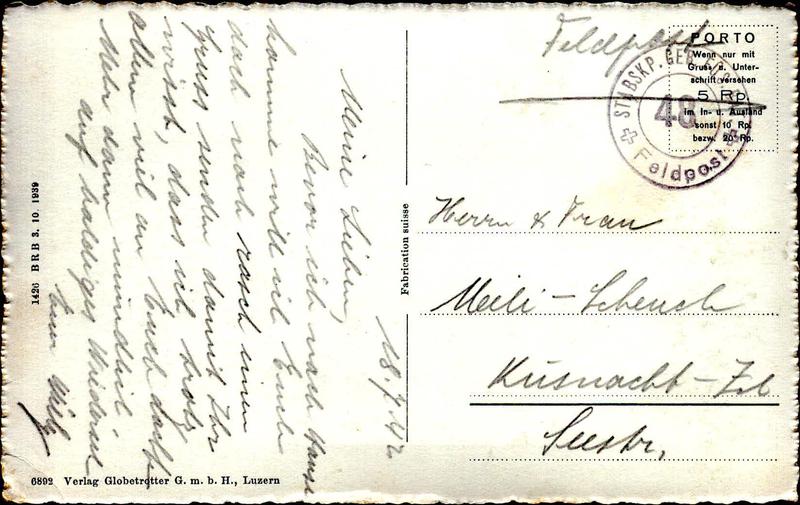 18. 7. 42
Meine Lieben,
Bevor ich nach Hause
komme will ich Euch
doch noch rasch einen
Gruss senden damit Ihr
wisst, dass ich trotz
allem viel an Euch dachte
Mehr dann mündlich.
Auf baldiges Wiedersehn
Euer Willy
1426 BRB 3. 10. 1939
6892 Verlag Globetrotter G. m. b. H., Luzern
Fabrication suisse
Feldpost
PORTO
Wenn nur mit
Gruss u. Unter-
schrift versehen
5 Rp.
im In- u. Ausland
sonst 10 Rp.
bezw. 20 Rp.
STABSKP. GEB.
48
Feldpost
Herrn & Frau
Meili-Scheuch
Küsnacht-Zch
Seestr.